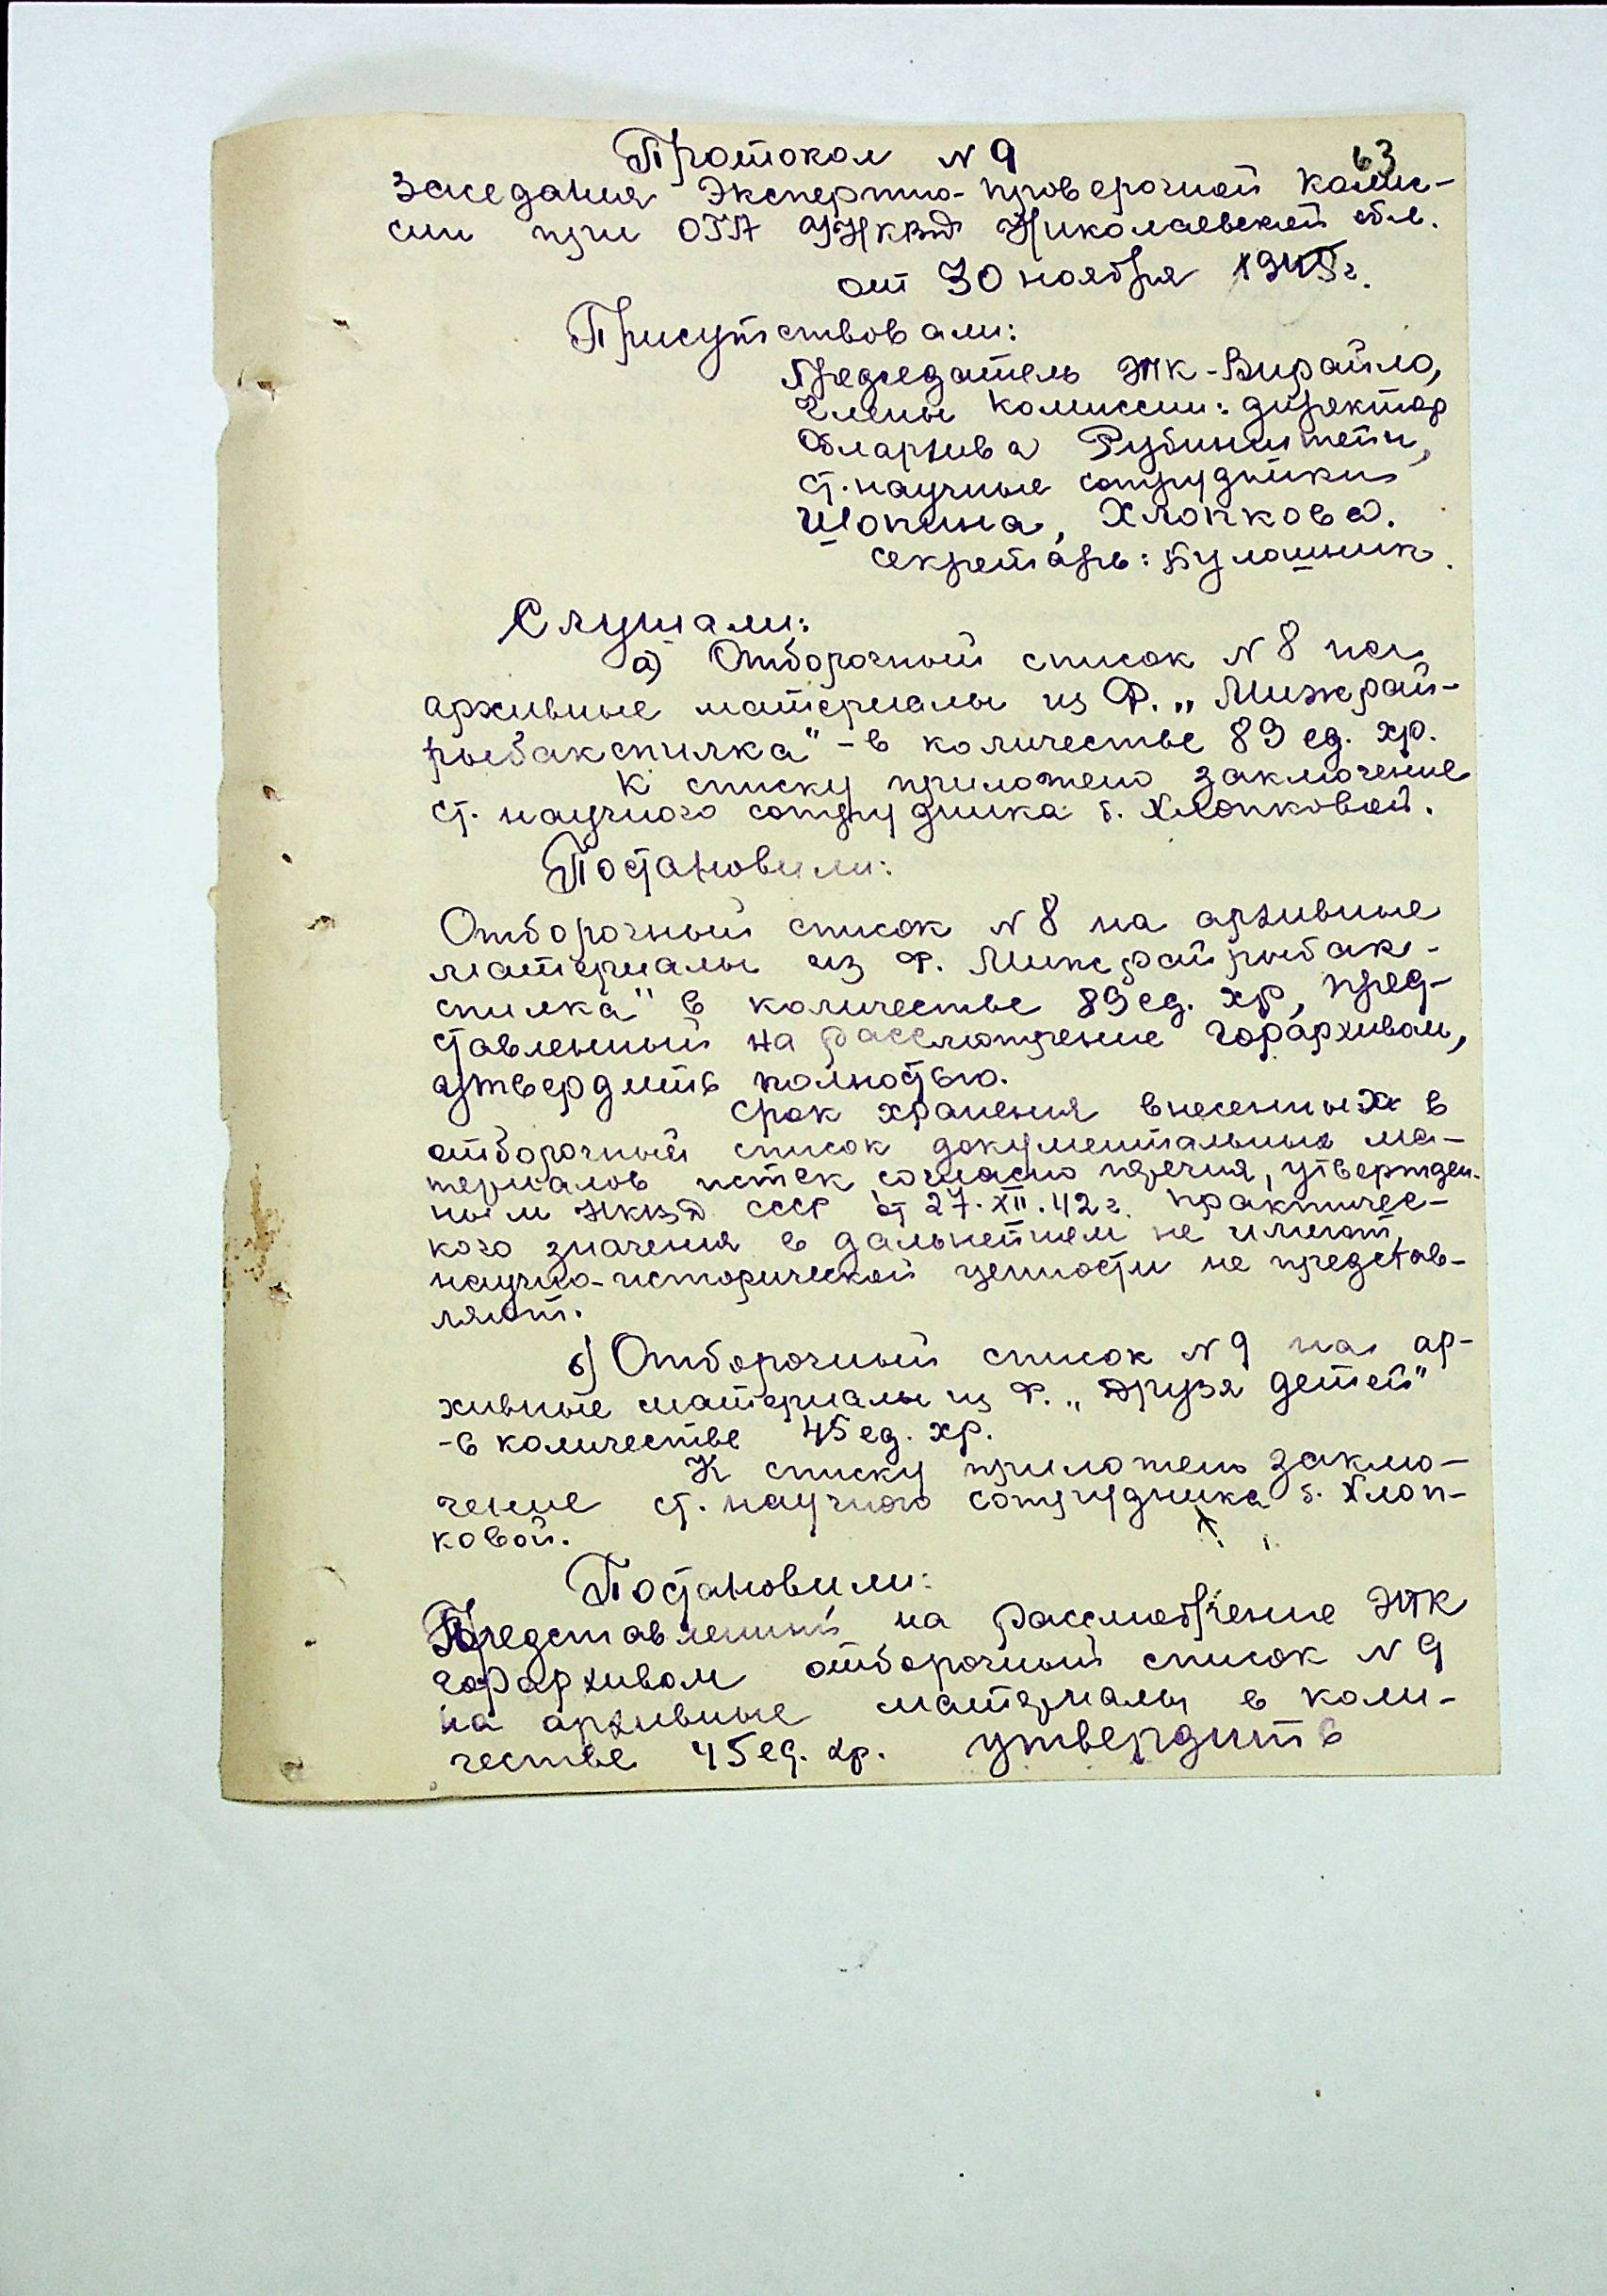 Протокол N 9
63
заседания Экспертно-проверочной комис-
сии при ОГА УНКВД Николаевской обл.
от 30 ноября 1945 г.
Присутствовали:
Председатель ЭПК - Вирайло,
Члены комиссии: директор
Облархива Рубинштейн,
ст. научные сотрудники
Шопина, Хлопкова.
секретарь: Булошник.
Слушали:
а) Отборочный список N 8 на
архивные материалы из Ф. „Мижрай-
рыбакспилка" - в количестве 89 ед. хр.
К списку приложено заключение
ст. научного сотрудника т. Хлопковой.
Постановили:
Отборочный список N 8 на архивные
материалы из Ф. Мижрайрыбак-
спилка" в количестве 89 ед. хр, пред-
ставленный на рассмотрение горархивом,
утвердить полностью.
Срок хранения внесенных в
отборочный список документальных ма-
териалов истек согласно перечня, утвержден-
ным НКВД СССР от 27.XII.42 г. практичес-
кого значения в дальнейшем не имеют,
научно-исторической ценности не представ-
ляют.
б) Отборочный список N 9 на ар-
хивные материалы из Ф. „Друзя детей"
- в количестве 45 ед. хр.
К списку приложено заклю-
чение ст. научного сотрудника т. Хлоп-
ковой.
Постановили:
Представленный на рассмотрение ЭПК
горархивом отборочный список N 9
на архивные материалы в коли-
честве 45 ед. хр. утвердить